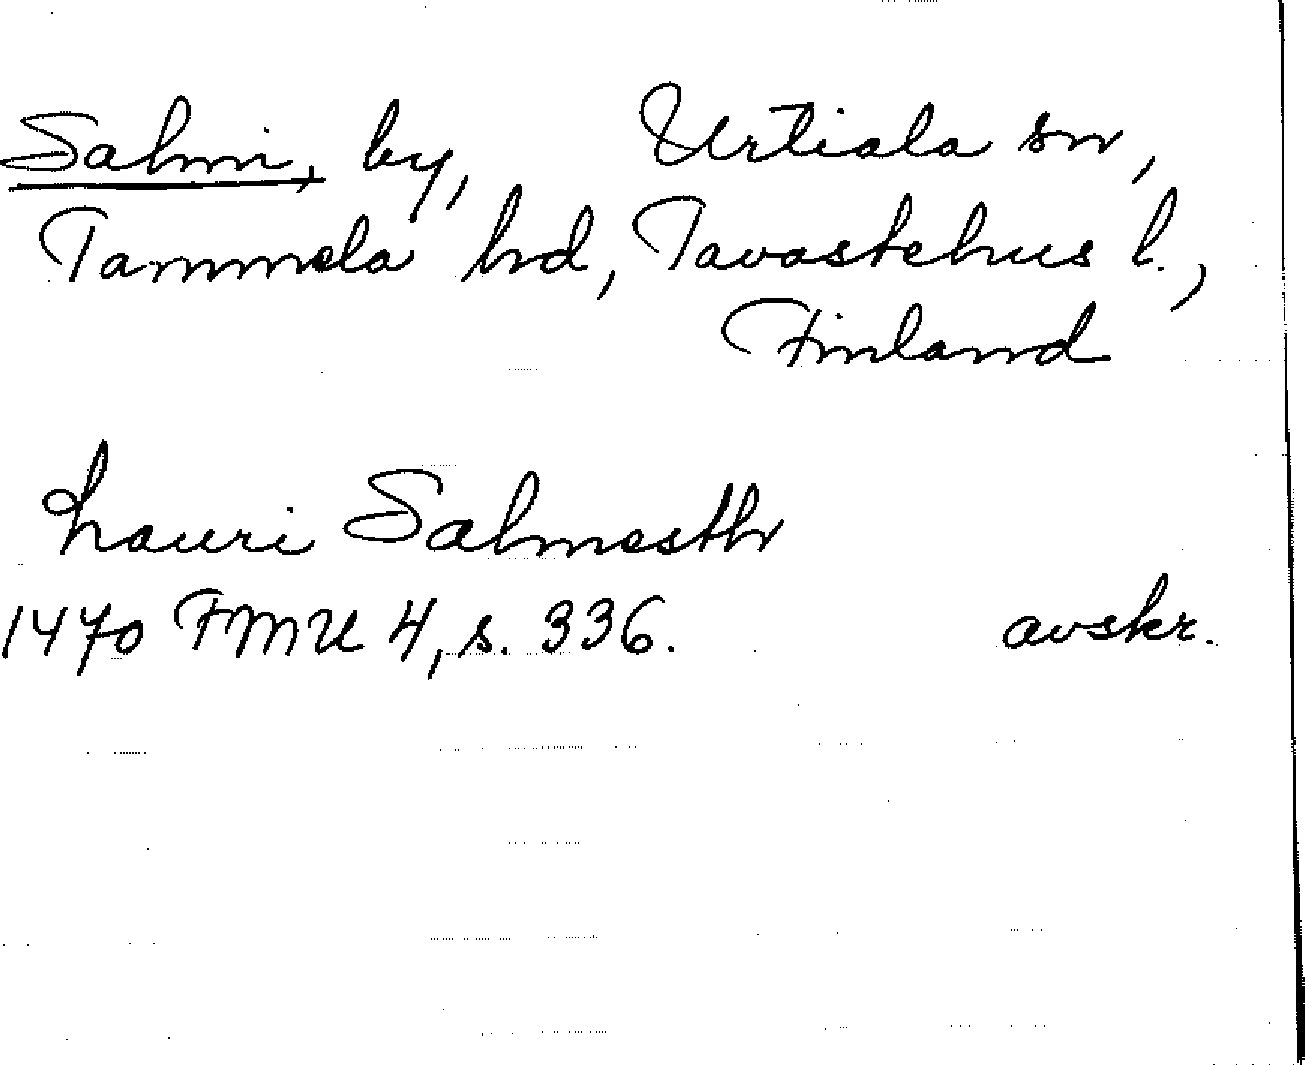 Salmi, by, Urtiala sn,
Tammela hrd, Tavastehus l.,
Finland
Lauri Salmesth
1470 FMU 4, s. 336. avskr.